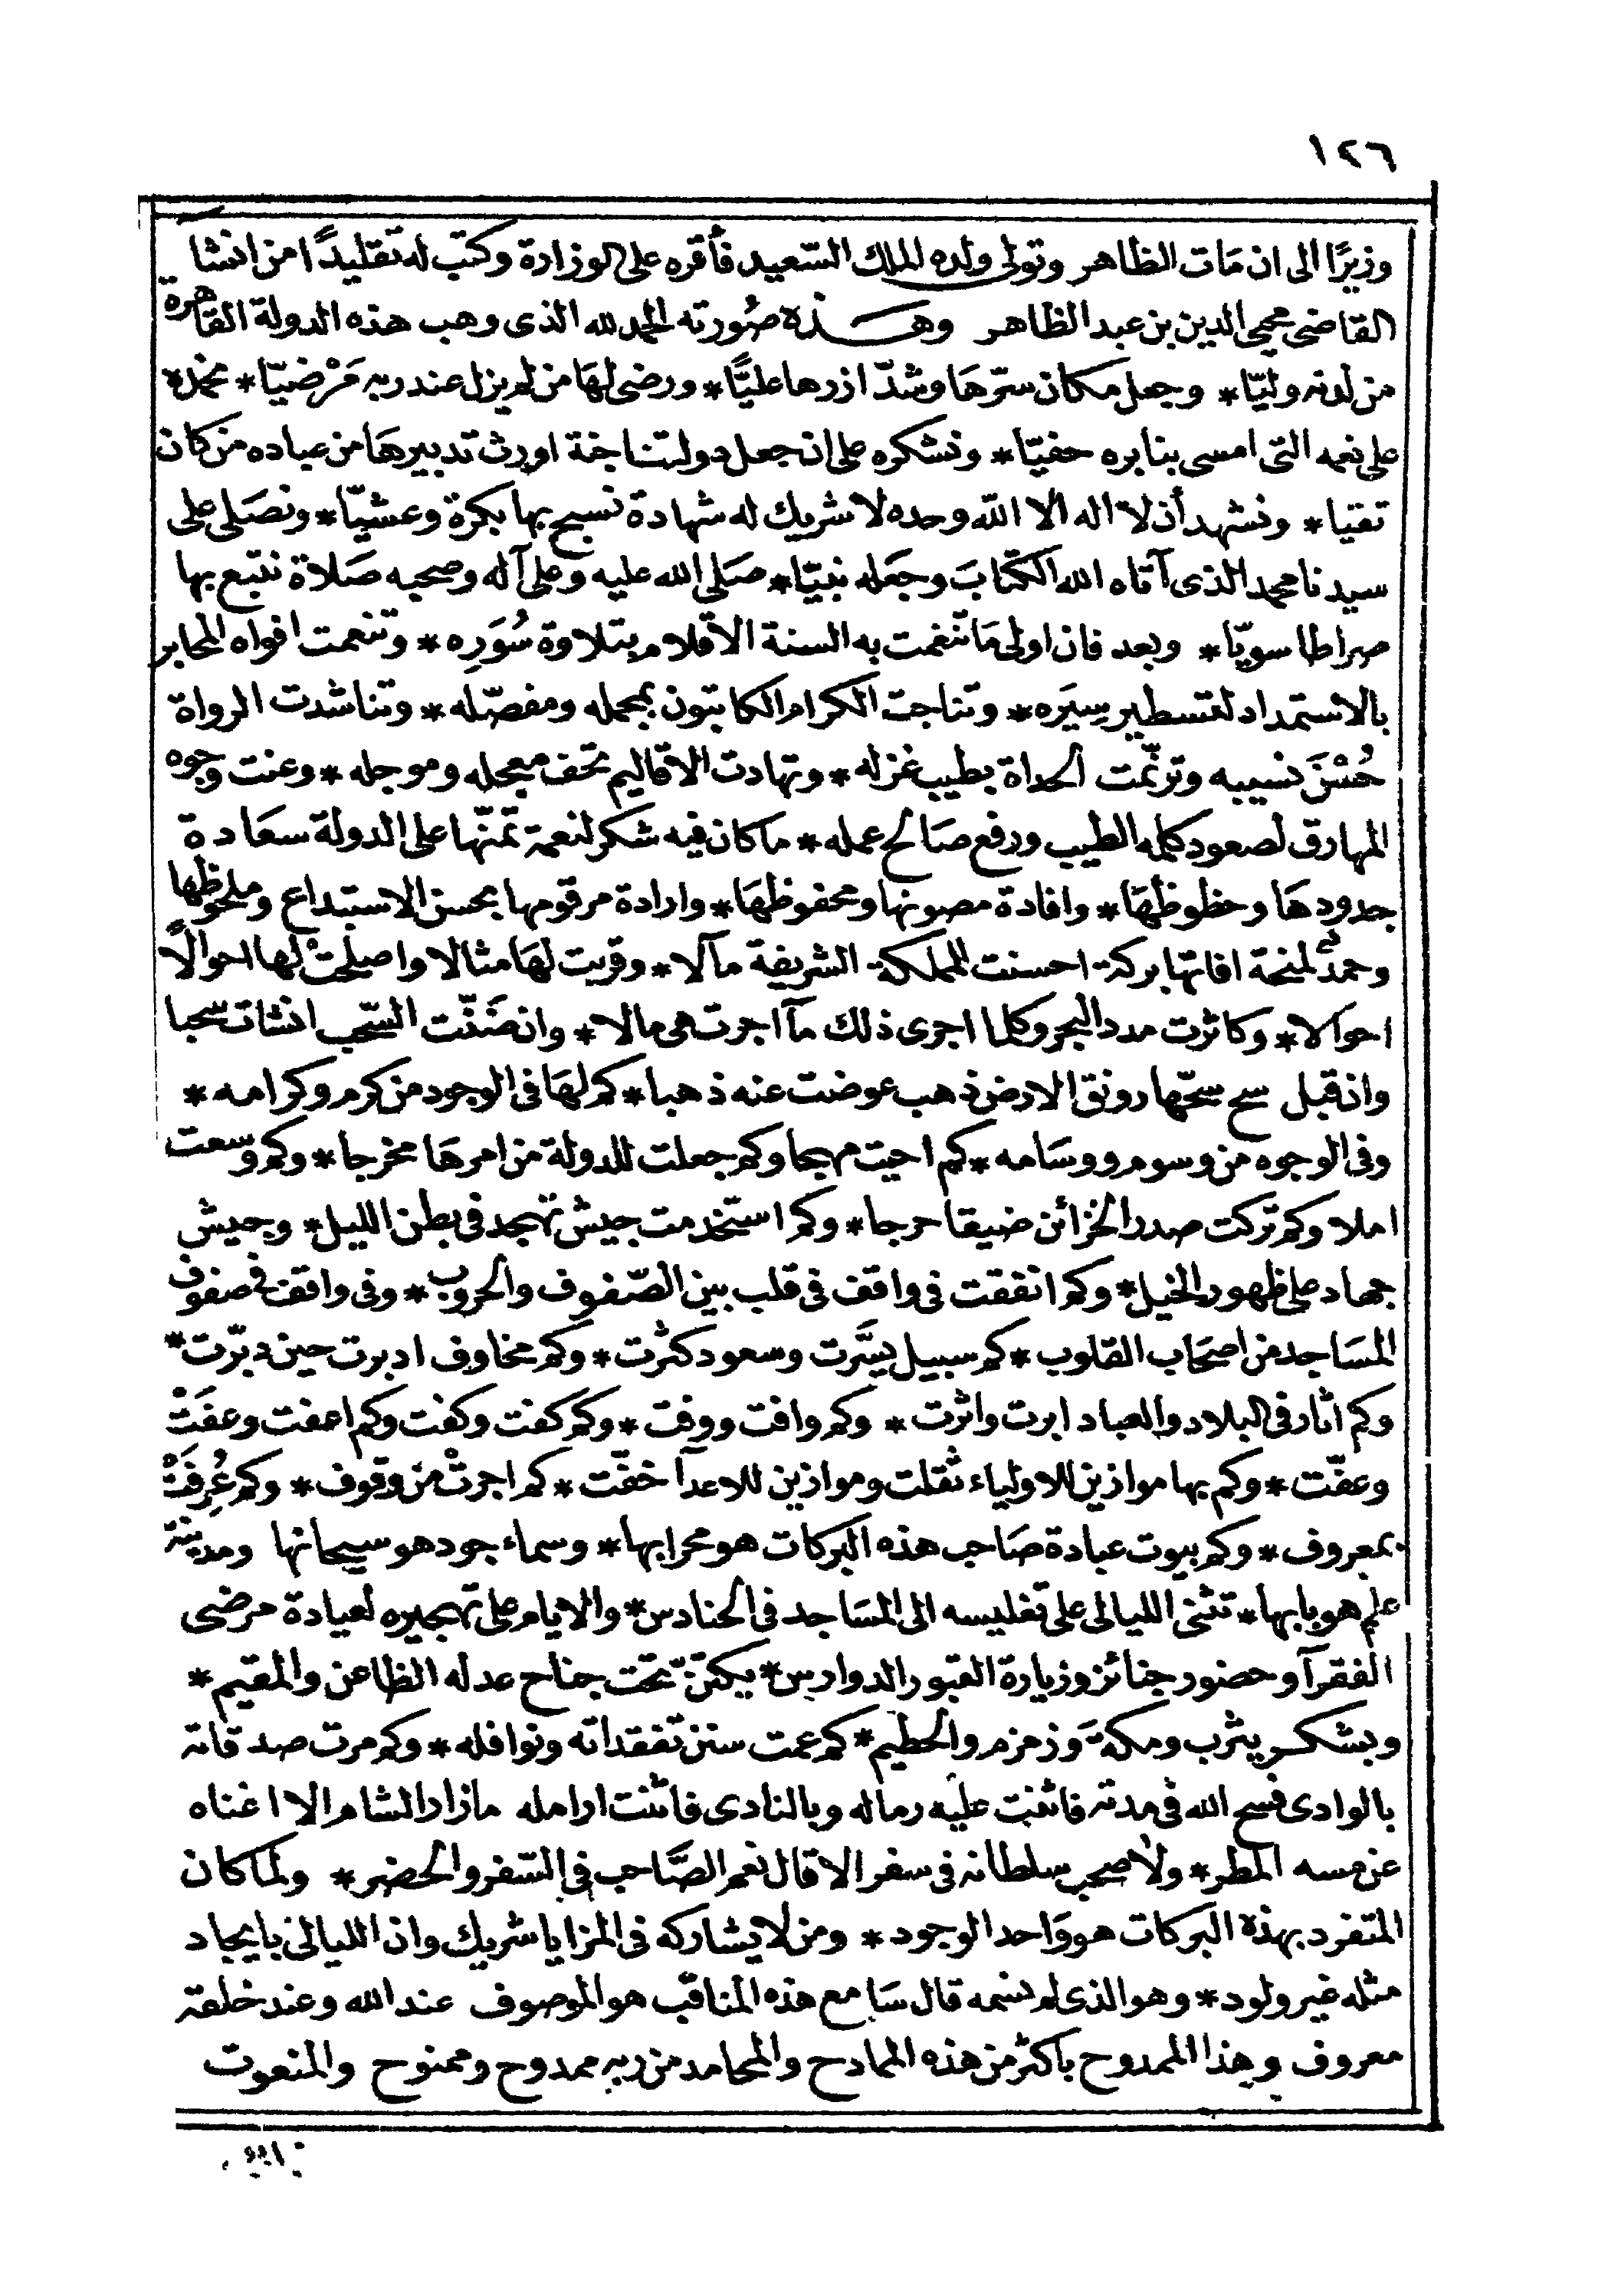 ١٢٦
وزيرًا الى ان مَات الظاهر وتولى ولده الملك السّعيد فأقره على الوزارة وكتب له تقليدًا من انشا
القاضى محيى الدين بن عبد الظاهر وهـــذه صُورته الحمد لله الذى وهب هذه الدولة القاهرة
من لدنه وليّا * وجعل مكان سرّهَا وشدّ ازرها عليًّا * ورضى لهَا من لم يزل عند ربه مَرْضيّا * نحمده
على نعمه التى امسى بنا بره حفيّا * ونشكره على ان جعل دولتنا جنة اورث تدبيرهَا من عباده من كان
تقيا * ونشهد أن لا اله الا الله وحده لا شريك له شهادة نسبح بها بكرة وعشيّا * ونصَلى على
سيدنا محمد الذى آتاه الله الكتابَ وجعَله نبيّا * صَلى الله عليه وعلى آله وصحبه صَلاة نتبع بها
صراطا سويّا * وبعد فان اولى مَا تنغمت به السنة الاقلام بتلاوة سُوَرِه * وتنعمت افواه المحابر
بالاستمداد لتسطير سِيَره * وتناجت الكرام الكاتبون بمجمله ومفصّله * وتناشدت الرواة
حُسْنَ نسيبه وترنّمت الحداة بطيب غزله * وتهادت الاقاليم تحف معجله وموجله * وعنت وجوه
المهارق لصعود كلمه الطيب ورفع صَالح عمله * ما كان فيه شكر لنعمة تمنّها على الدولة سعَادة
جدودهَا وحظوظهَا * وافادة مصونها ومحفوظهَا * وارادة مرقومها بحسن الاستيداع وملحوظها
وحمدٌ لمنحة افاتها بركة احسنت للمملكة الشريفة مآلا * وقربت لهَا مثالا واصلحتْ لها احوالًا
احوالا * وكاثرت مدد البحر وكلما اجرى ذلك مآ اجرت هى مالا * وان ضَنّت السّحب انشات سحبا
وان قيل سح سحّها رونق الارض ذهب عوضت عنه ذهبا * كم لهَا فى الوجود من كرم وكرامه *
وفى الوجوه من وسوم ووسَامه * كم احيت مهجا وكم جعلت للدولة من امرهَا مخرجا * وكم وسعت
املا وكم تركت صدر الخزائن ضيقا حرجا * وكم استخدمت جيش تهجد فى بطن الليل * وجيش
جهاد على ظهور الخيل * وكم انفقت فى واقف فى قلب بين الصّفوف والحروب * وفى واقف فى صفوف
المسَاجد من اصحَاب القلوب * كم سبيل يسَّرت وسعود كثّرت * وكم مخاوف ادبرت حين دبّرت *
وكم اثار فى البلاد والعباد ابرت واثرت * وكم وافت ووفت * وكم كفت وكفت وكم اعفت وعفَتْ
وعفّت * وكم بها موازين للاولياء ثقلت وموازين للاعدآ خفّت * كم اجرتْ من وقوف * وكم عُرِفَتْ
بمعروف * وكم بيوت عبادة صَاحب هذه البركات هو محرابها * وسماء جود هو سحابها ومدينة
علم هو بابها * تثنى الليالى على تغليسه الى المسَاجد فى الحنادس * والايام على تهجيره لعيادة مرضى
الفقرآ وحضور جنائز وزيارة القبور الدوارس * يكتنّ تحت جناح عدله الظاعن والمقيم *
وبشكـــر يثرب ومكةَ وزمزم والحطيم * كم عمت سنن تفقداته ونوافله * وكم مرت صدقاته
بالوادى فسح الله فى مدته فاثنت عليه رماله وبالنادى فاثنت ارامله مازار الشام الا اغناه
عن مسه المطر * ولا صحب سلطانه فى سفر الا قال نعم الصَّاحب فى السّفر والحضر * ولما كان
المتفرد بهذه البركات هو وَاحد الوجود * ومن لا يشاركه فى المزايا شريك وان الليالى بايجاد
مثله غير ولود * وهو الذى لو نسمه قال سَامع هذه المناقب هو الموصوف عند الله وعند خلقه
معروف وهذا الممدوح باكثر من هذه الممادح والمحامد من ربه ممدوح وممنوح والمنعوت